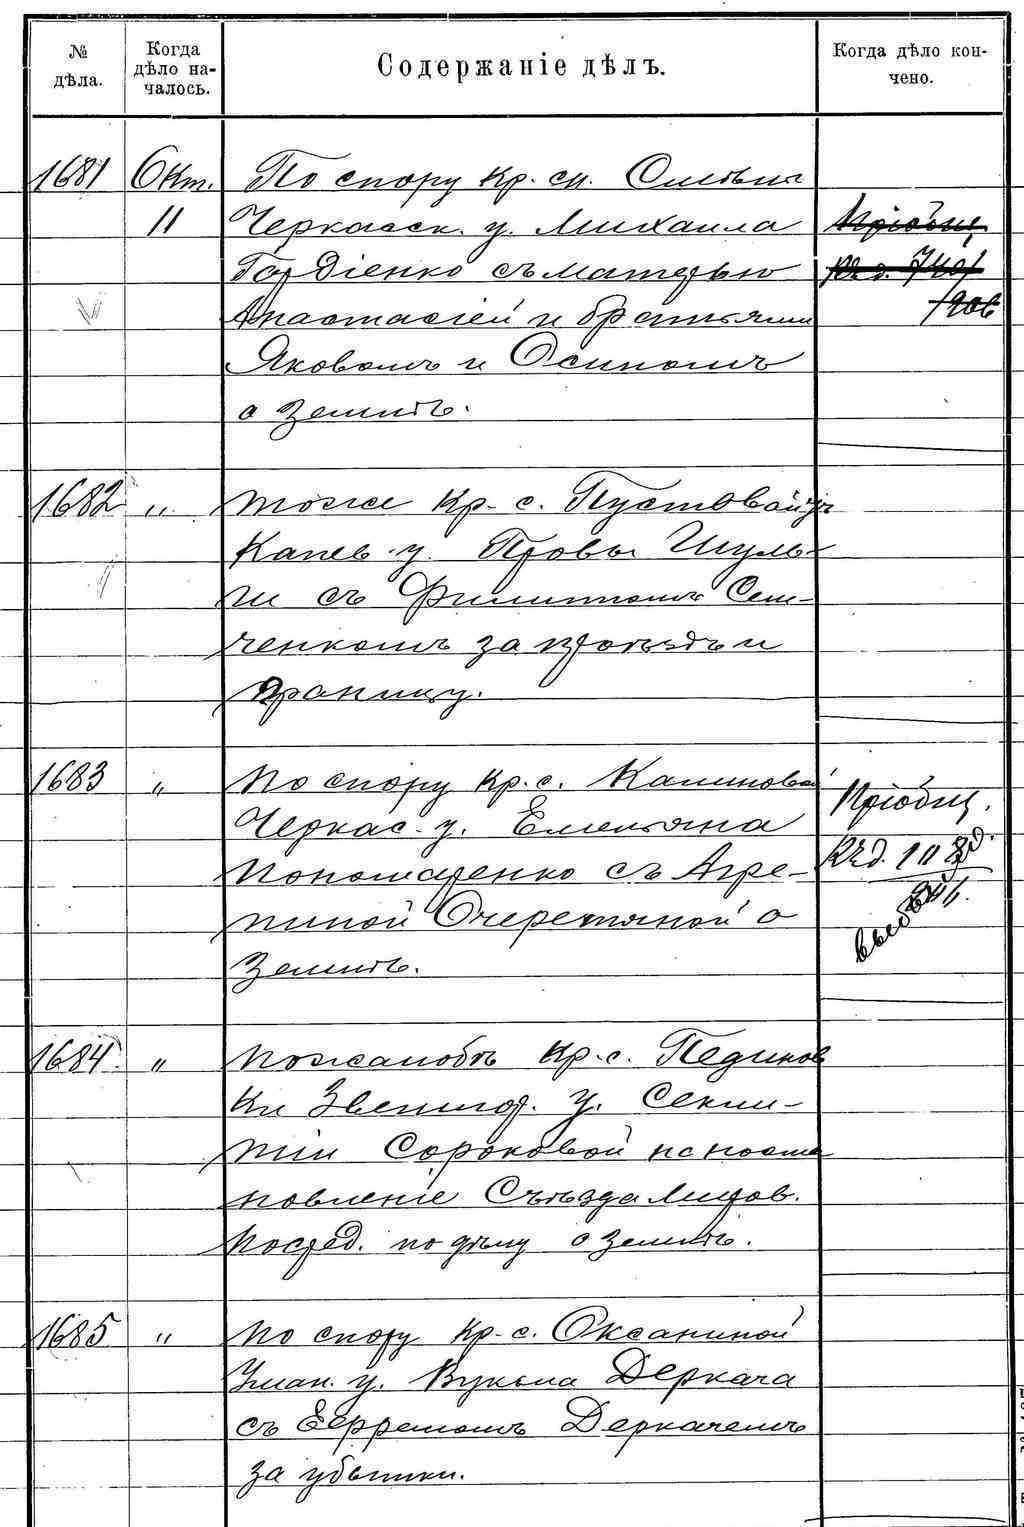 № дѣла.
Когда дѣло на-чалось.
Содержаніе дѣлъ.
Когда дѣло кон-чено.
1681 Окт. По спору кр. см. Смѣлы
11 Черкасск. у. Михаила Пріобщ
Гордіенко съ матерью къ д. 740/
Анастасіей и братьями 1906
Яковомъ и Осипомъ
о землѣ.
1682 " тоже кр. с. Пустовойт
Канев. у. Провы Шуль-
ги съ Филиппомъ Сем-
ченкомъ за проѣздъ и
границу.
1683 " По спору кр. с. Калиновой
Черкас. у. Емельяна Пріобщ.
Пономаренко съ Агре- къ д.
пиной Очеретяной о
землѣ.
1684 " По жалобѣ кр. с. Пединов
ки Звенигор. у. Секли-
тіи Сороковой на поста
новленіе Съѣзда Миров.
Посред. по дѣлу о землѣ.
1685 " По спору кр. с. Оксаниной
Уман. у. Вукола Деркача
съ Ефремомъ Деркачемъ
за убытки.